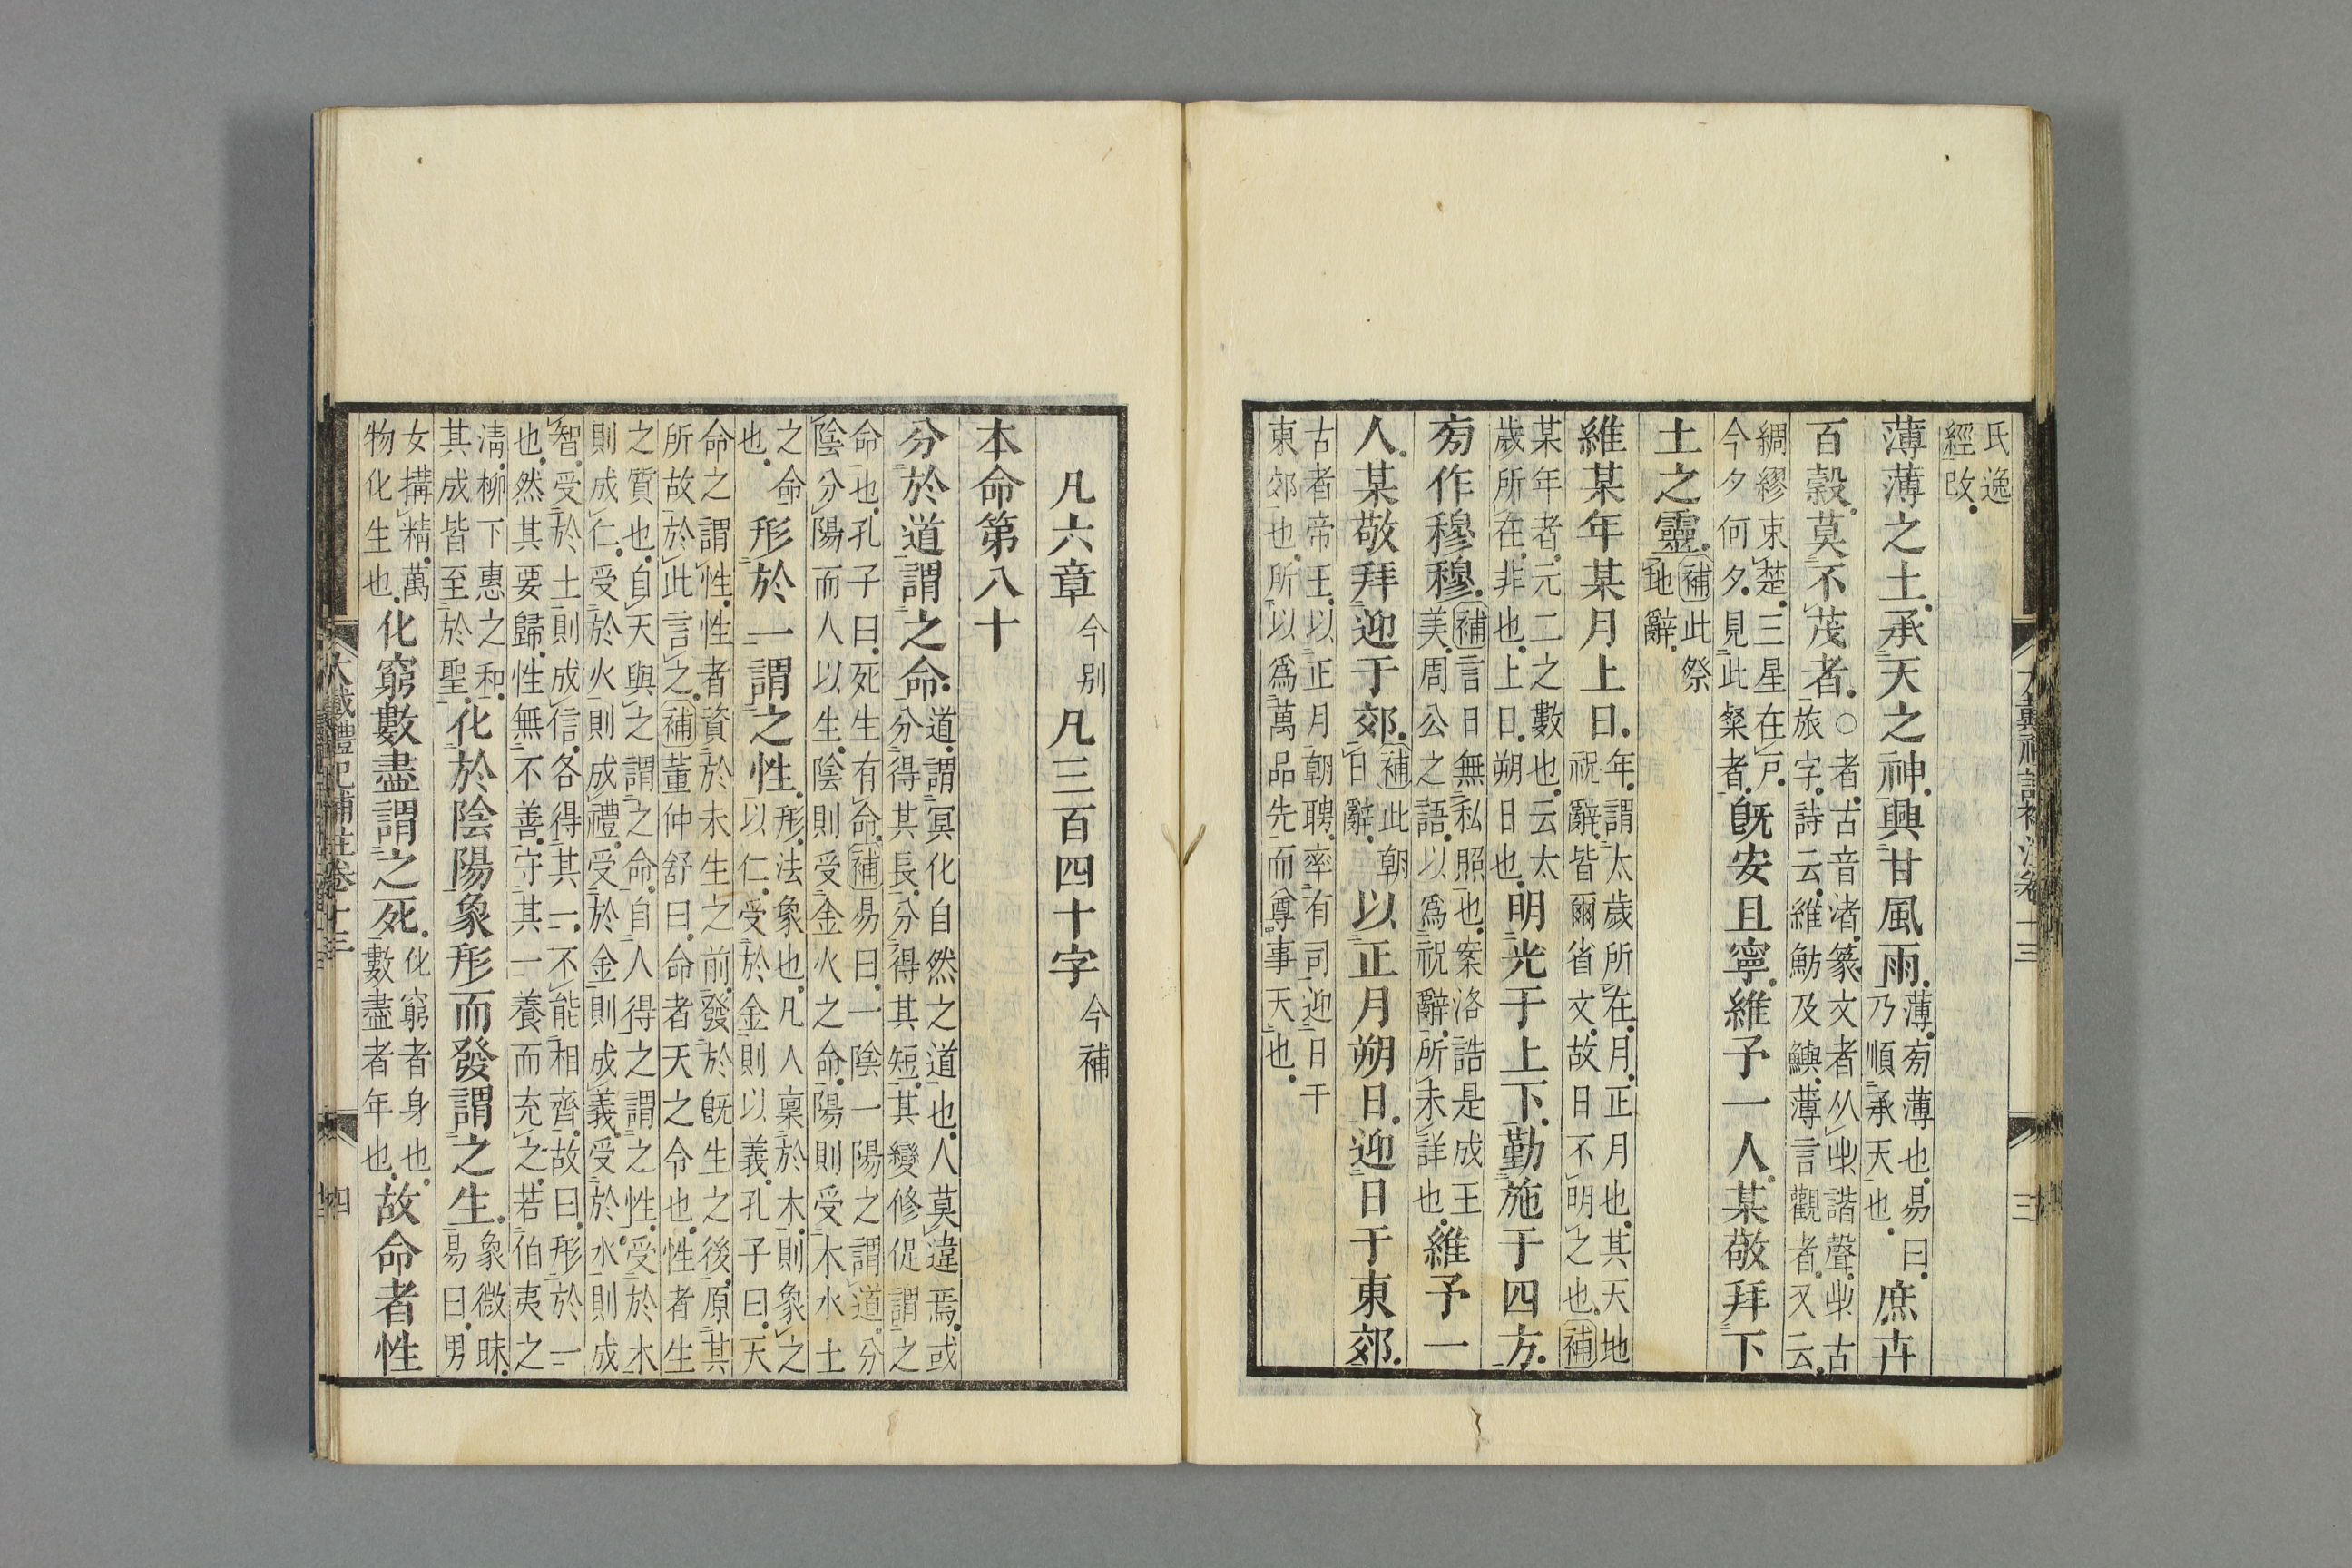 氏逸經改
薄薄之土承天之神興甘風雨薄旁薄也易曰乃順承天也庶卉
百穀莫不茂者○者古音渚篆文者从𣥐諧聲𣥐古旅字詩云維魴及鱮薄言觀者又云
綢繆束楚三星在戶今夕何夕見此粲者既安且寧維予一人某敬拜下
土之靈補此祭地辭
維某年某月上日年謂太歲所在月正月也其天地祝辭皆爾省文故日不明之也補
某年者元二之數也云太歲所在非也上日朔日也明光于上下勤施于四方
旁作穆穆補言日無私照也案洛誥是成王美周公之語以爲祝辭所未詳也維予一
人某敬拜迎于郊補此朝日辭以正月朔日迎日于東郊
古者帝王以正月朝聘率有司迎日于東郊也所以爲萬品先而尊事天也
凡六章今別凡三百四十字今補
本命第八十
分於道謂之命道謂冥化自然之道也人莫違焉或分得其長分得其短其變修促謂之
命也孔子曰死生有命補易曰一陰一陽之謂道分陰分陽而人以生陰則受金火之命陽則受木水土
之命也形於一謂之性形法象也凡人稟於木則象之以仁受於金則以義孔子曰天
命之謂性性者資於未生之前發於既生之後原其所故於此言之補董仲舒曰命者天之令也性者生
之質也自天與之謂之命自人得之謂之性受於木則成仁受於火則成禮受於金則成義受於水則成
智受於土則成信各得其一不能相齊故曰形於一也然其要歸性無不善守其一養而充之若伯夷之
淸柳下惠之和其成皆至於聖化於陰陽象形而發謂之生象微昧易曰男
女搆精萬物化生也化窮數盡謂之死化窮者身也數盡者年也故命者性
大戴禮記補注卷十三 四